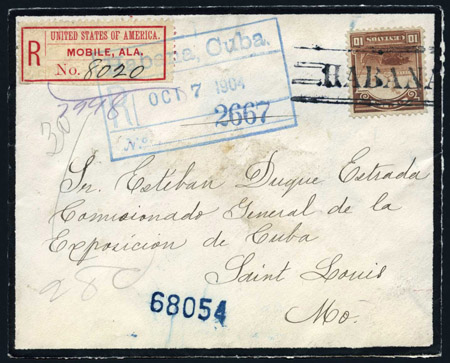 UNITED STATES OF AMERICA.
R
MOBILE, ALA.
No. 8020
Habana, Cuba.
R
OCT 7 1904
No. 2667
10 CENTAVOS 10
HABANA
2998
30
Sr. Esteban Duque Estrada
Comisionado General de la
Exposicion de Cuba
Saint Louis
Mo.
68054